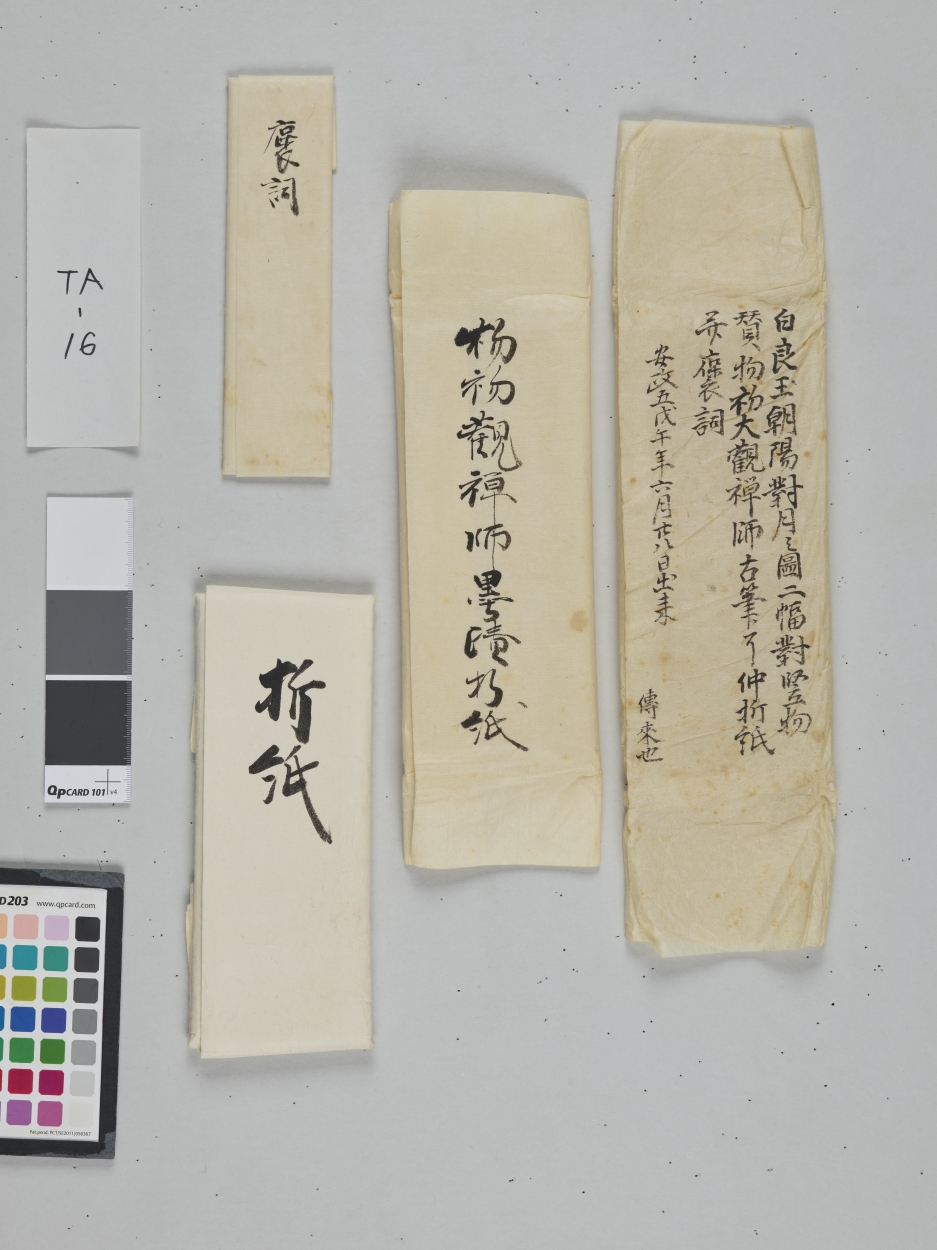 白良玉朝陽對月之圖二幅對竪物
賛物初大觀禅師古筆了仲折紙
并褒詞
安政五戊午年六月廿八日出来
傳來也
物初觀禅師墨蹟折紙
褒詞
折紙
TA
-
16
QPCARD 101 v4
203 www.qpcard.com